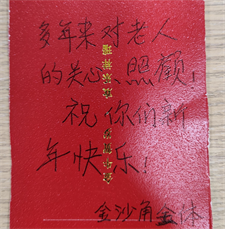 多年来对老人
的关心、照顾!
祝你们新
年快乐!
金沙角全体